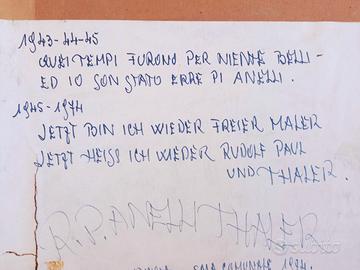 1943-44-45
QUEI TEMPI FURONO PER NIENTE BELLI -
ED IO SON STATO ERRE PI ANELLI.
1945-1974
JETZT BIN ICH WIEDER FREIER MALER
JETZT HEISS ICH WIEDER RUDOLF PAUL
UND THALER.
R.P. ANELLI THALER
SALA COMUNALE 1974.